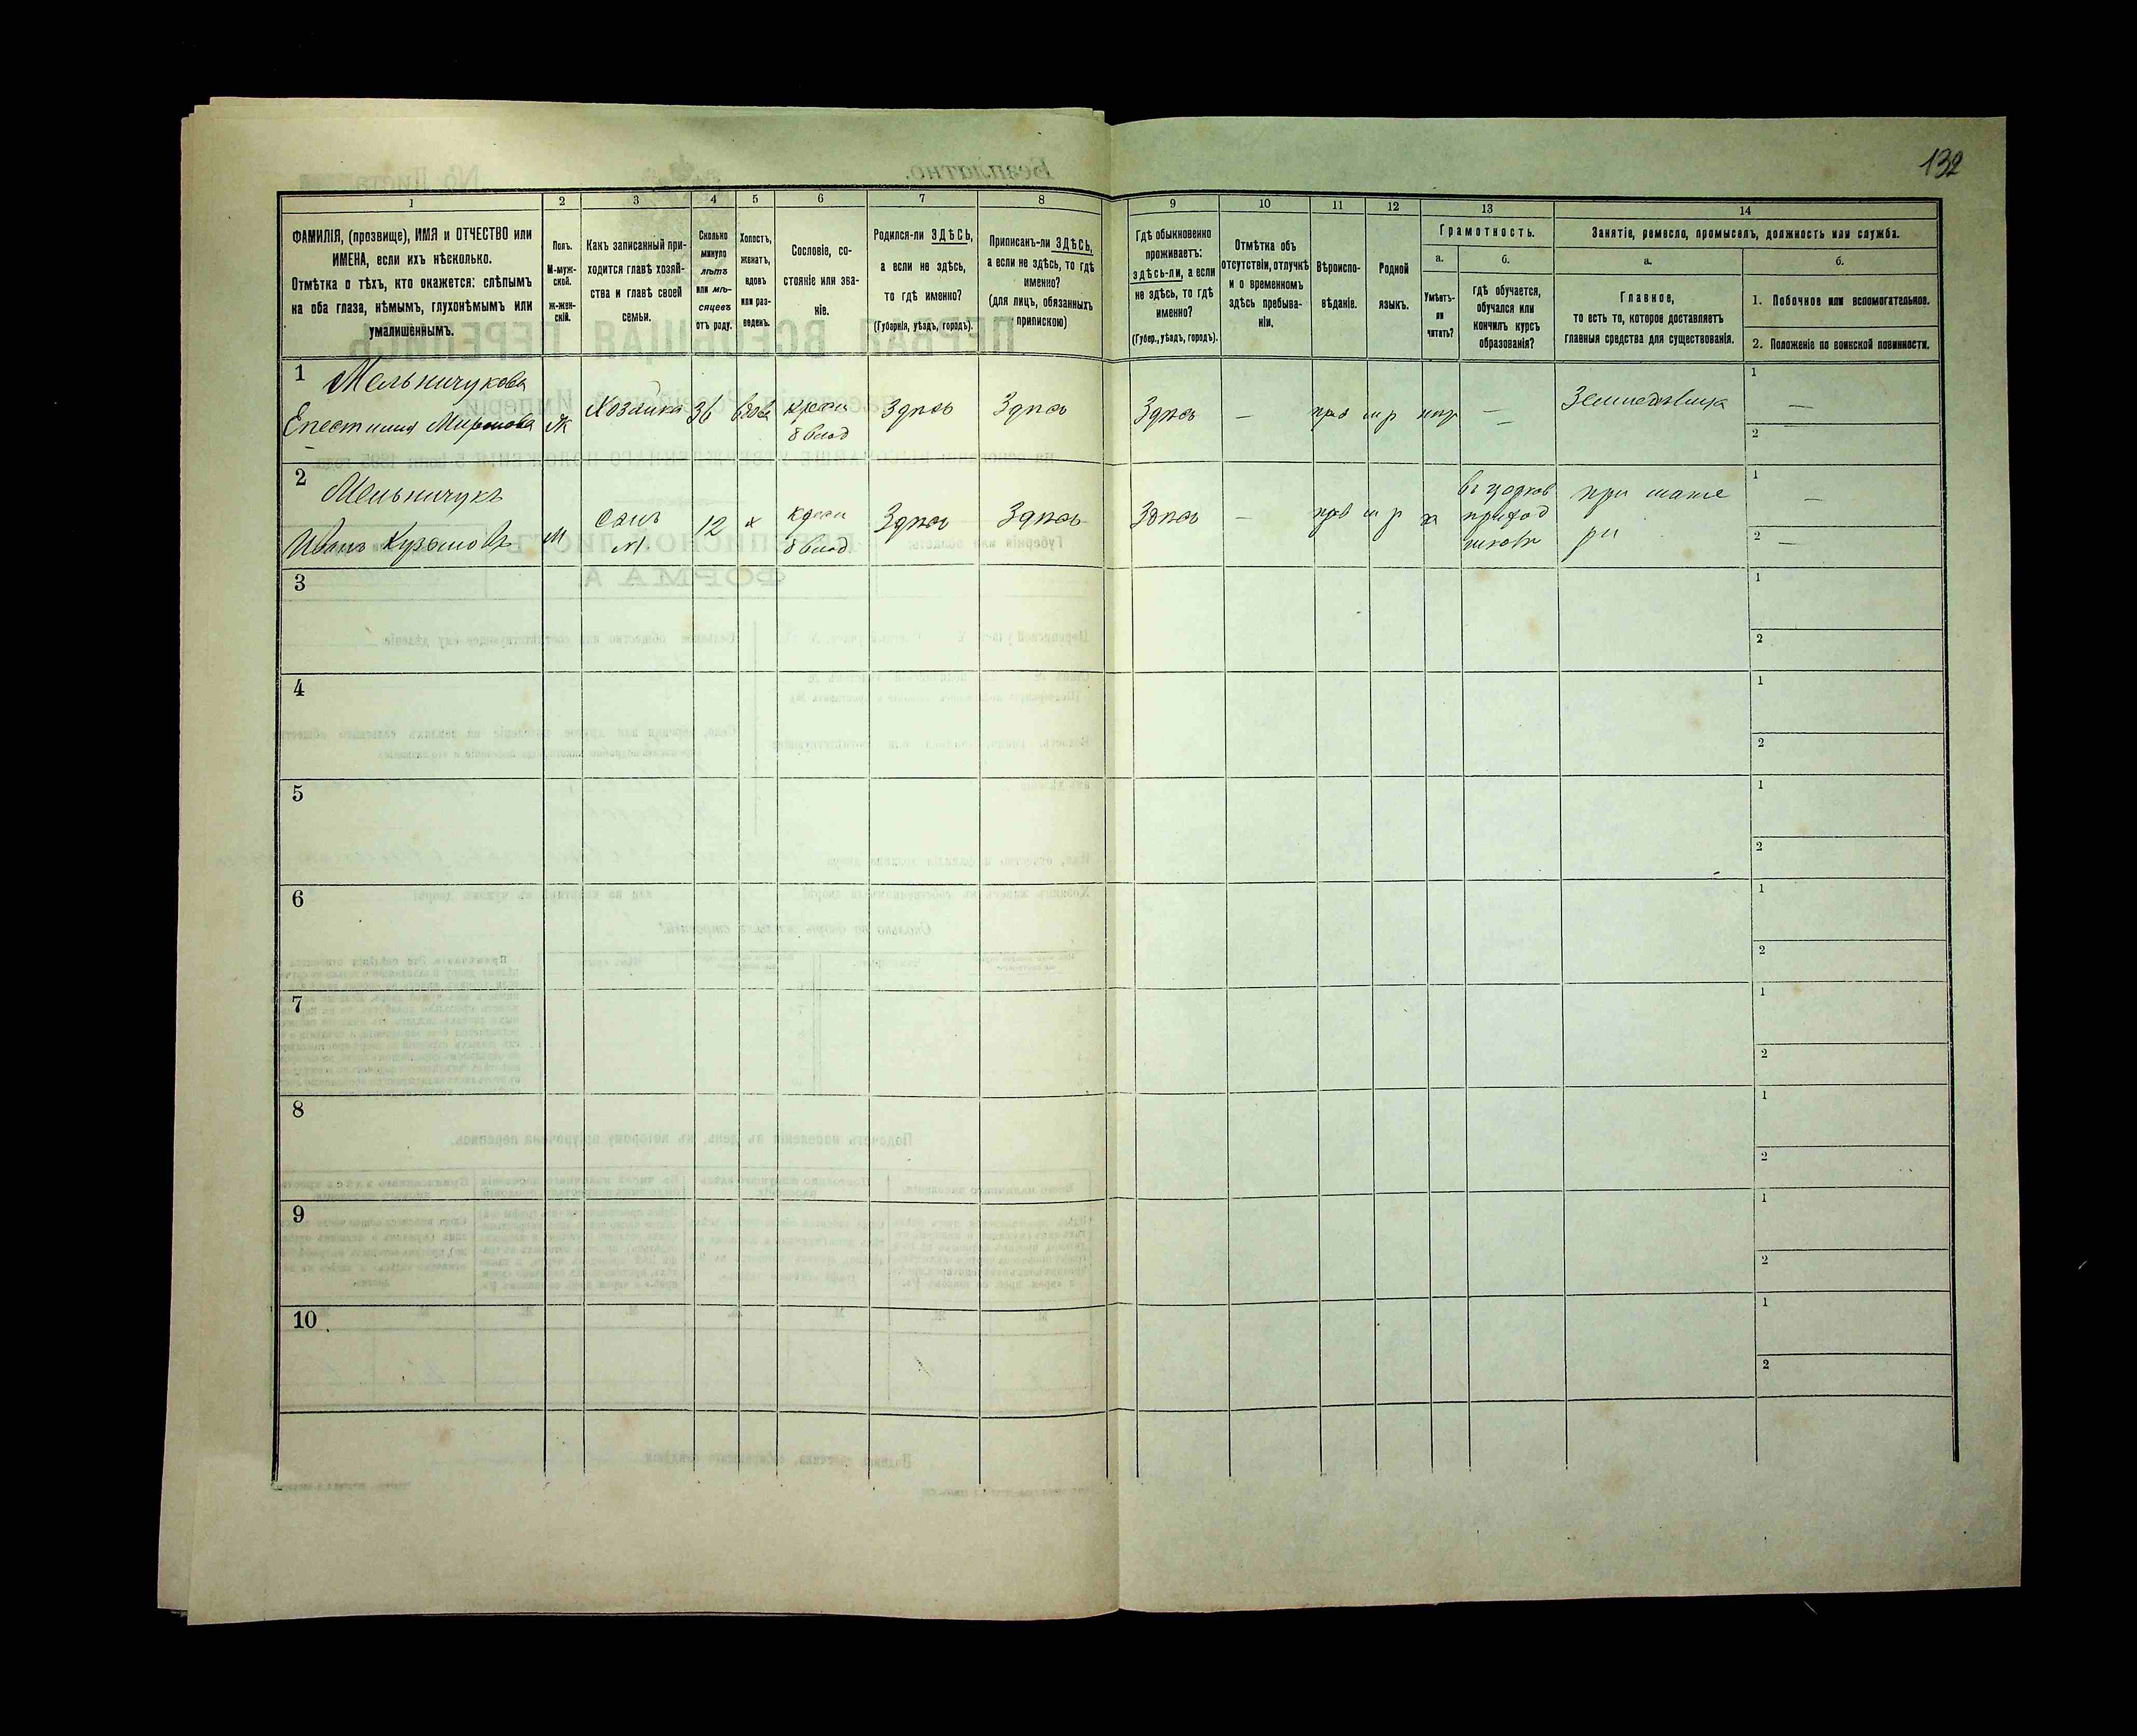 132
1 2 3 4 5 6 7 8 9 10 11 12 13 14
ФАМИЛІЯ, (прозвище), ИМЯ и ОТЧЕСТВО или
ИМЕНА, если ихъ нѣсколько.
Отмѣтка о тѣхъ, кто окажется: слѣпымъ
на оба глаза, нѣмымъ, глухонѣмымъ или
умалишённымъ.
Полъ.
М-муж-
ской.
ж-жен-
скій.
Какъ записанный при-
ходится главѣ хозяй-
ства и главѣ своей
семьи.
Сколько
минуло
лѣтъ
или мѣ-
сяцевъ
отъ роду.
Холостъ,
женатъ,
вдовъ
или раз-
веденъ.
Сословіе, со-
стояніе или зва-
ніе.
Родился-ли ЗДѢСЬ,
а если не здѣсь,
то гдѣ именно?
(Губернія, уѣздъ, городъ).
Приписанъ-ли ЗДѢСЬ,
а если не здѣсь, то гдѣ
именно?
(для лицъ, обязанныхъ
припискою)
Гдѣ обыкновенно
проживаетъ:
здѣсь-ли, а если
не здѣсь, то гдѣ
именно?
(Губер., уѣздъ, городъ).
Отмѣтка объ
отсутствіи, отлучкѣ
и о временномъ
здѣсь пребыва-
ніи.
Вѣроиспо-
вѣданіе.
Родной
языкъ.
Грамотность.
а.
Умѣетъ-
ли
читать?
б.
гдѣ обучается,
обучался или
кончилъ курсъ
образованія?
Занятіе, ремесло, промыселъ, должность или служба.
а.
Главное,
то есть то, которое доставляетъ
главныя средства для существованія.
б.
1. Побочное или вспомогательное.
2. Положеніе по воинской повинности.
1 Мельничукова
Епестимия Миронова
Ж
Хозяйка
36
вдова
крест
б влад
Здѣсь
Здѣсь
Здѣсь
—
прав
м р
нѣтр
—
Земледѣлица
1 —
2 —
2 Мельничукъ
Иванъ Кузьмовъ
М
сынъ
12
х
крест
б влад
Здѣсь
Здѣсь
Здѣсь
—
прав
м р
да
въ церков
приход
школѣ
при мате
ри
1 —
2 —
3
1
2
4
1
2
5
1
2
6
1
2
7
1
2
8
1
2
9
1
2
10
1
2